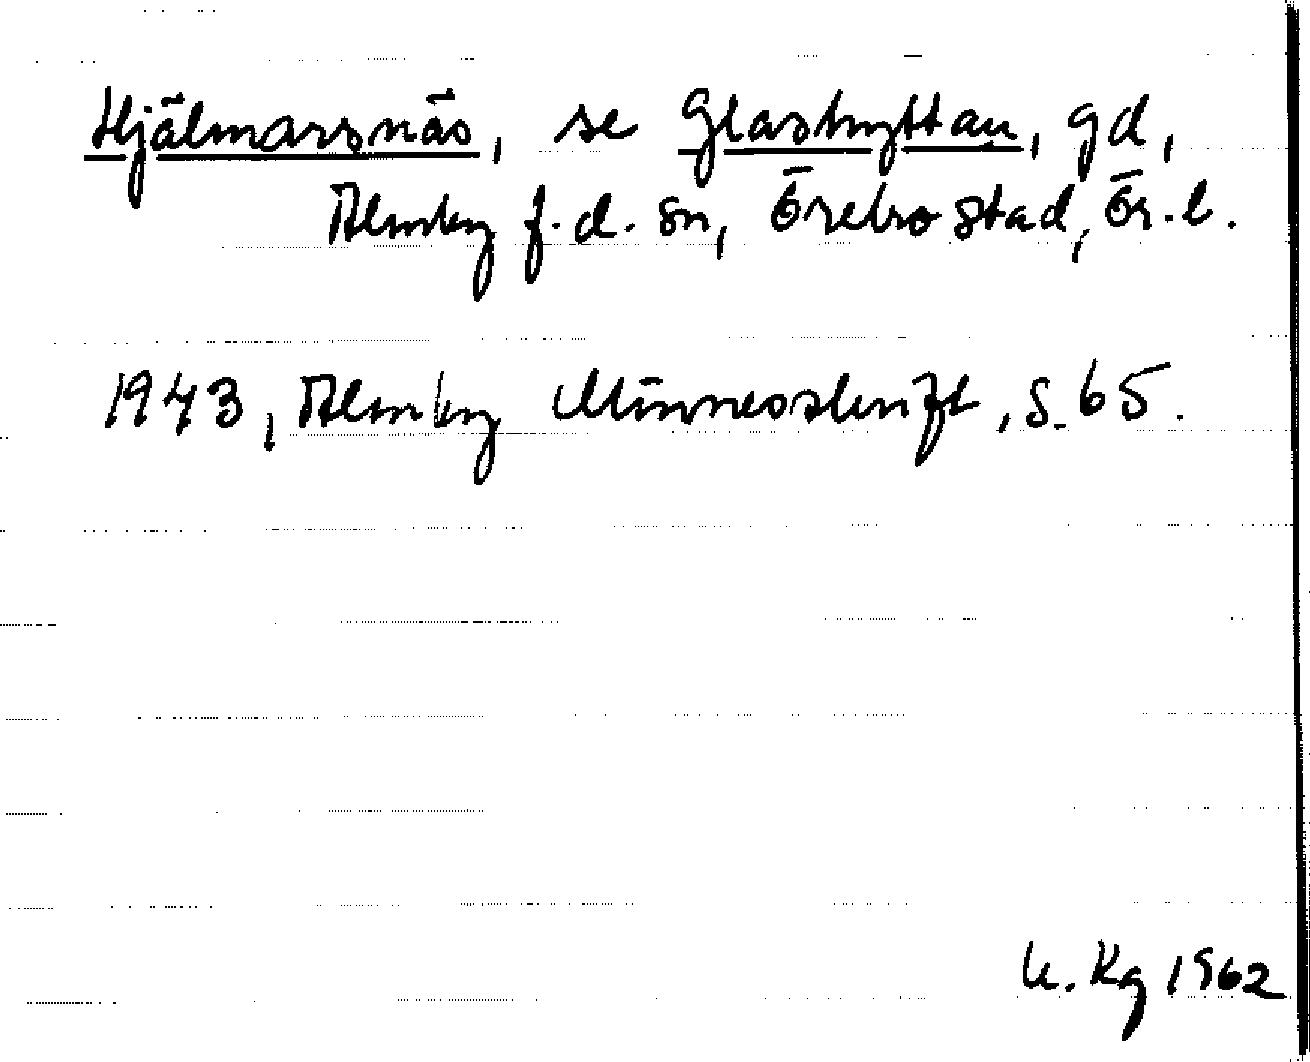 Hjälmarsnäs, se Glashyttan, gd,
Almby f.d. sn, Örebro stad, Ör. l.
1943, Almby Minnesskrift, s. 65.
K. Kg 1962